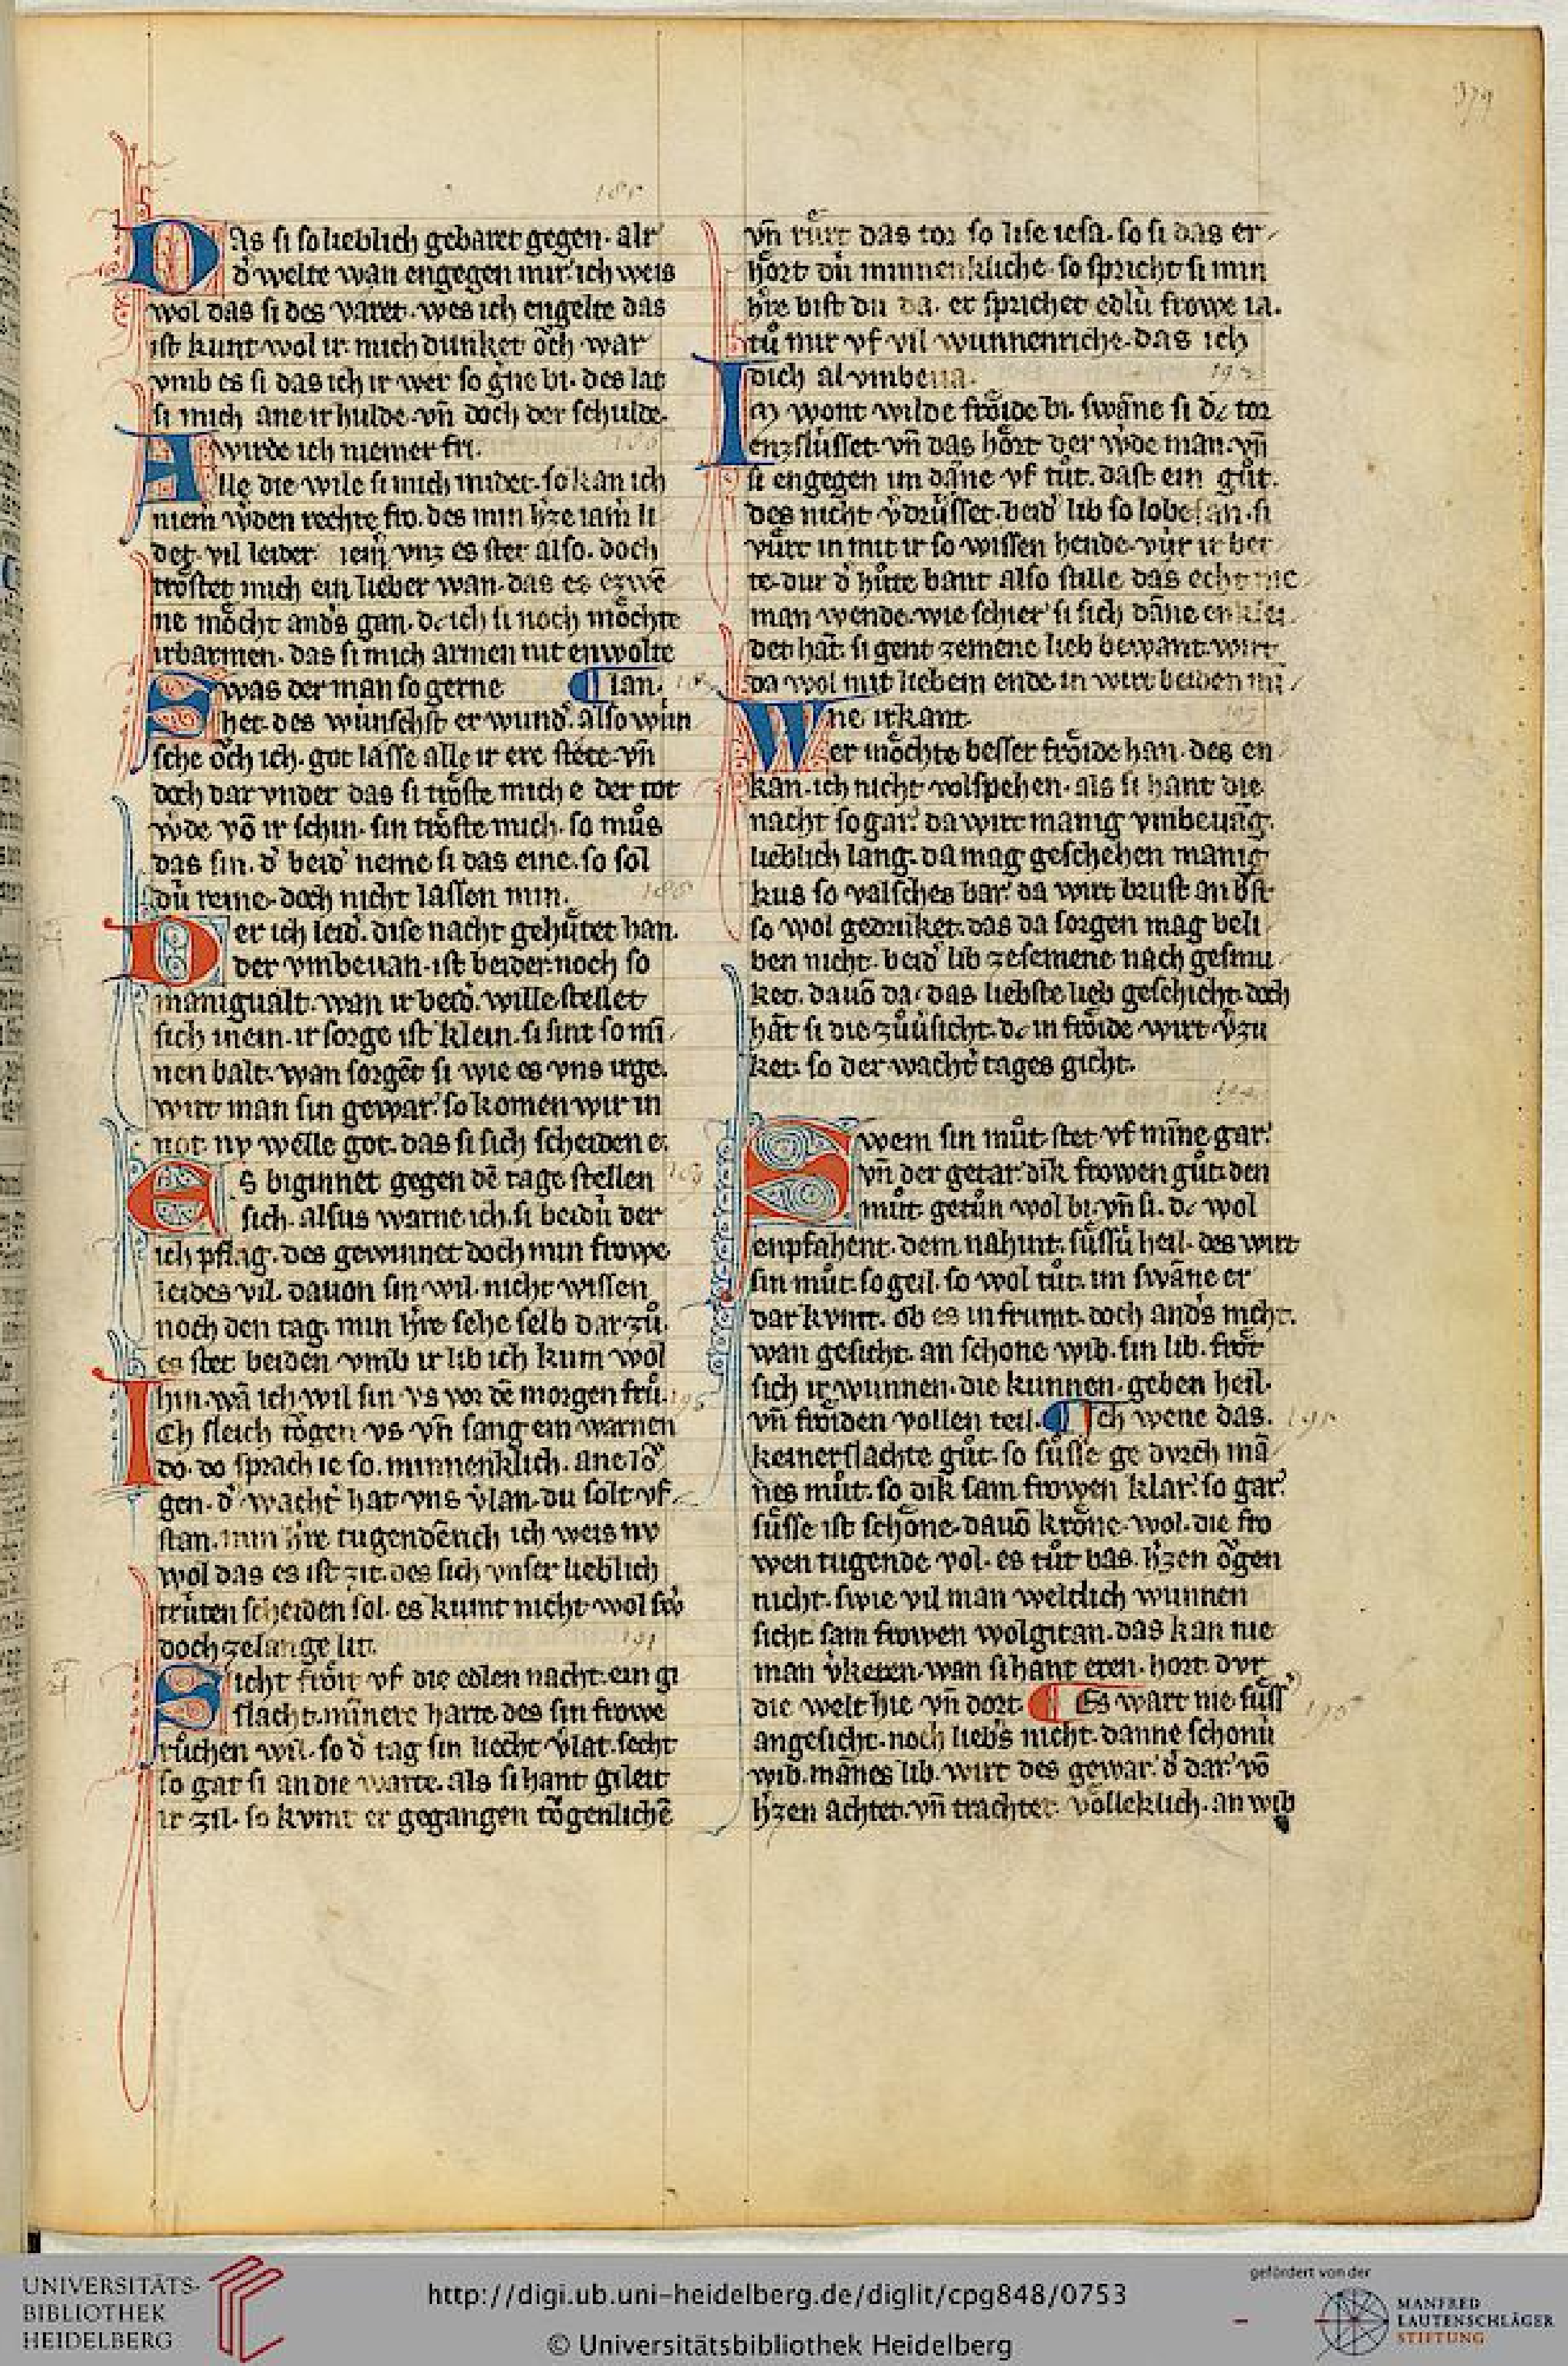 379
185
Das si so lieblich gebaret gegen. alr
d' welte wan engegen mir. ich weis
wol das si des varet. wes ich engelte das
ist kunt wol ir. mich dunket och war
vmb es si das ich ir wer so gne bi. des lat
si mich ane ir hulde. vn̄ doch der schulde.
wirde ich niemer fri.
Alle die wile si mich midet. so kan ich
niem̄ wͥden rechte fro. des min hͥze iam̄ li
det. vil leider. iem̄ vnz es stet also. doch
trostet mich ein lieber wan. das es etzwē
ne mocht and's gan. dc ich si noch mochte
irbarmen. das si mich armen nit enwolte
¶ lan.
Swas der man so gerne
het. des wunschst er wund'. also wún
sche och ich. got lasse alle ir ere stete. vn̄
doch dar vnder das si troste mich e der tot
wͥde vō ir schin. sin troste mich. so můs
das sin. d' beid' neme si das eine. so sol
dú reine. doch nicht lassen min.
188
Der ich leid'. dise nacht gehůtet han.
der vmbeuan. ist beider. noch so
manigualt. wan ir beid'. wille stellet
sich inein. ir sorge ist klein. si sint so mī
nen balt. wan sorgēt si wie es vns irge.
wirt man sin gewar. so komen wir in
not. nv welle got. das si sich scheiden e.
Es biginnet gegen dē tage stellen
189
sich. alsus warne ich. si beidú der
ich pflig. des gewinnet doch min frowe
leides vil. dauon sin wil. nicht wissen
noch den tag. min hͥre sehe selb dar zů.
es stet beiden vmb ir lib ich kum wol
hin. wā ich wil sin vs vor dē morgen frů.
190
Ich sleich togen vs vn̄ sang ein warnen
do. do sprach ie so. minnenklich. ane lo
gen. d' wacht' hat vns vͥlan. du solt vf
stan. min hͥre tugendērich ich weis nv
wol das es ist zit. des sich vnser lieblich
trúten scheiden sol. es kumt nicht wol swͦ
doch ze lange lit.
191
Sicht frőit vf die edlen nacht. ein gi
slacht. minere harte. des sin frowe
růchen wil. so d' tag sin liecht vͥlat. secht
so gat si an die warte. als si hant gileit
ir zil. so kvmt er gegangen togenlichē
vn̄ růrt das tor so lise iesa. so si das er
hort dú minnenkliche. so spricht si min
hͥre bist du da. er sprichet edlú frowe ia.
tů mir vf vil wunnenriche. das ich
dich al vmbeua.
192
Im wont wilde froide bi. swāne si dc tor
enzslússet. vn̄ das hort der wͥde man. vn̄
si engegen im dāne vf tůt. dast ein gůt.
des nicht vͥdrússet. beid' lib so lobesan. si
vůrt in mit ir so wissen hende. vúr ir bet
te. dur d' hůte bant also stille das echt nie
man wende. wie schier si sich dāne enklei
det hāt. si gent zemene lieb bewant. wirt
da wol mit liebem ende. in wirt beiden mī
ne irkant.
193
Wer mochte besser froide han. des en
kan. ich nicht volspehen. als si hant die
nacht so gar. da wirt manig vmbeuāg.
lieblich lang. da mag geschehen manig
kus so valsches bar. da wirt brust an b'st
so wol gedruket. das da sorgen mag beli
ben nicht. beid' lib zesemene nach gesmu
ket. dauō da das liebste lieb geschicht. doch
hāt si die zůúsicht. dc in froide wirt vͥzu
ket. so der wacht' tages gicht.
194
Swem sin můt. stet vf mīne gar.
vn̄ der getar. dik frowen gůt. den
můt. getůn wol bi. vn̄ si. dc wol
enpfahent. dem nahint. sůssú heil. des wirt
sin můt. so geil. so wol tůt. im swāne er
dar kvmt. ob es in frumt. doch and's nicht.
wan gesicht. an schone wib. sin lib. froit
sich ir wunnen. die kunnen. geben heil.
vn̄ froiden vollen teil. ¶ Ich wene das.
195
keinerslachte gůt. so sůsse ge dvrch mā
nes můt. so dik sam frowen klar. so gar.
sůsse ist schone. dauō krone. wol. die fro
wen tugende vol. es tůt bas. hͥzen ogen
nicht. swie vil man weltlich wunnen
sicht. sam frowen wolgitan. das kan nie
man vͥkeren. wan si hant eren. hort. dvr
die welt hie vn̄ dort. ¶ Es wart nie sůss'
196
angesicht. noch lieb's nicht. danne schonú
wib. mānes lib. wirt des gewar. d' dar. vō
hͥzen achtet. vn̄ trachtet. volleklich. an wib
UNIVERSITÄTS-
BIBLIOTHEK
HEIDELBERG
http://digi.ub.uni-heidelberg.de/diglit/cpg848/0753
© Universitätsbibliothek Heidelberg
gefördert von der
MANFRED
LAUTENSCHLÄGER
STIFTUNG